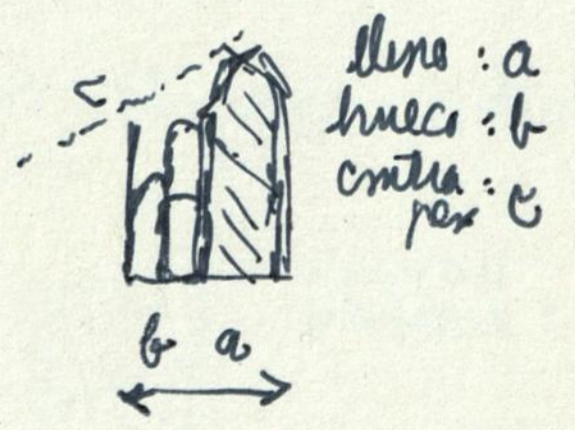 c
lleno : a
hueco : b
contra :
peso c
b a